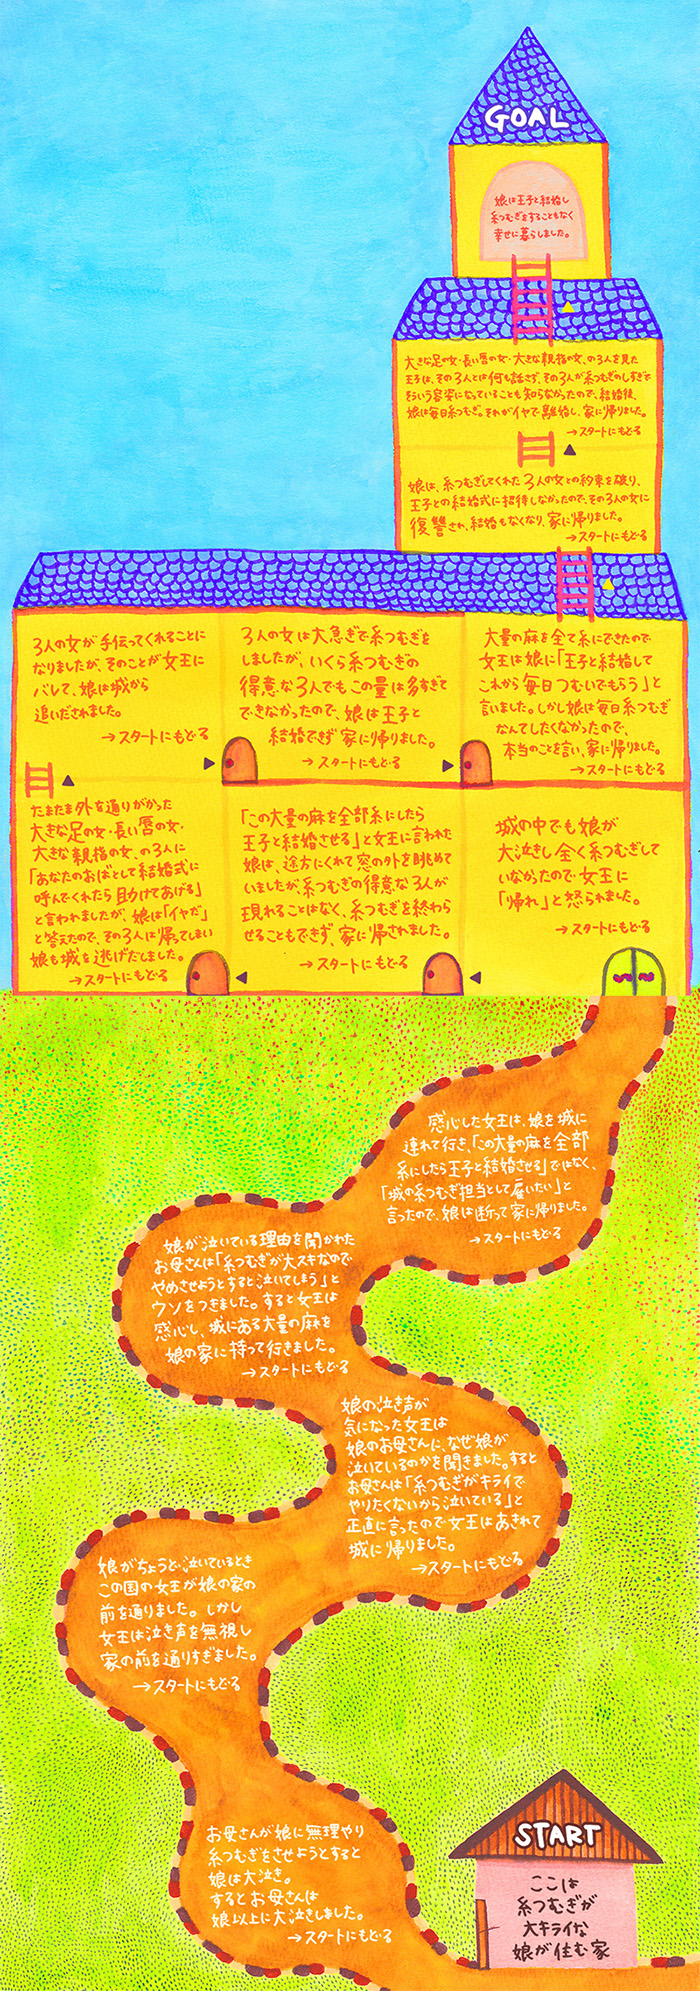 GOAL
娘は王子と結婚し
糸つむぎをすることもなく
幸せに暮らしました。
大きな足の女・長い唇の女・大きな親指の女、の3人を見た
王子は、その3人とは何も話さず、その3人が糸つむぎのしすぎで
そういう容姿になっていることも知らなかったので、結婚後、
娘は毎日糸つむぎ。それがイヤで離婚し、家に帰りました。
→スタートにもどる
娘は、糸つむぎしてくれた3人の女との約束を破り、
王子との結婚式に招待しなかったので、その3人の女に
復讐され、結婚もなくなり、家に帰りました。
→スタートにもどる
3人の女が手伝ってくれることに
なりましたが、そのことが女王に
バレて、娘は城から
追いだされました。
→スタートにもどる
3人の女は大急ぎで糸つむぎを
しましたが、いくら糸つむぎの
得意な3人でもこの量は多すぎて
できなかったので、娘は王子と
結婚できず家に帰りました。
→スタートにもどる
大量の麻を全て糸にできたので
女王は娘に「王子と結婚して
これから毎日つむいでもらう」と
言いました。しかし娘は毎日糸つむぎ
なんてしたくなかったので、
本当のことを言い、家に帰りました。
→スタートにもどる
たまたま外を通りがかった
大きな足の女・長い唇の女・
大きな親指の女、の3人に
「あなたのおばとして結婚式に
呼んでくれたら助けてあげる」
と言われましたが、娘は「イヤだ」
と答えたので、その3人は帰ってしまい
娘も城を逃げだしました。
→スタートにもどる
「この大量の麻を全部糸にしたら
王子と結婚させる」と女王に言われた
娘は、途方にくれて窓の外を眺めて
いましたが、糸つむぎの得意な3人が
現れることはなく、糸つむぎを終わら
せることもできず、家に帰されました。
→スタートにもどる
城の中でも娘が
大泣きし全く糸つむぎして
いなかったので女王に
「帰れ」と怒られました。
→スタートにもどる
感心した女王は、娘を城に
連れて行き、「この大量の麻を全部
糸にしたら王子と結婚させる」ではなく、
「城の糸つむぎ担当として雇いたい」と
言ったので、娘は断って家に帰りました。
→スタートにもどる
娘が泣いている理由を聞かれた
お母さんは「糸つむぎが大スキなので
やめさせようとすると泣いてしまう」と
ウソをつきました。すると女王は
感心し、城にある大量の麻を
娘の家に持って行きました。
→スタートにもどる
娘の泣き声が
気になった女王は
娘のお母さんに、なぜ娘が
泣いているのかを聞きました。すると
お母さんは「糸つむぎがキライで
やりたくないから泣いている」と
正直に言ったので女王はあきれて
城に帰りました。
→スタートにもどる
娘がちょうど泣いているとき
この国の女王が娘の家の
前を通りました。しかし
女王は泣き声を無視し
家の前を通りすぎました。
→スタートにもどる
お母さんが娘に無理やり
糸つむぎをさせようとすると
娘は大泣き。
するとお母さんは
娘以上に大泣きしました。
→スタートにもどる
START
ここは
糸つむぎが
大キライな
娘が住む家